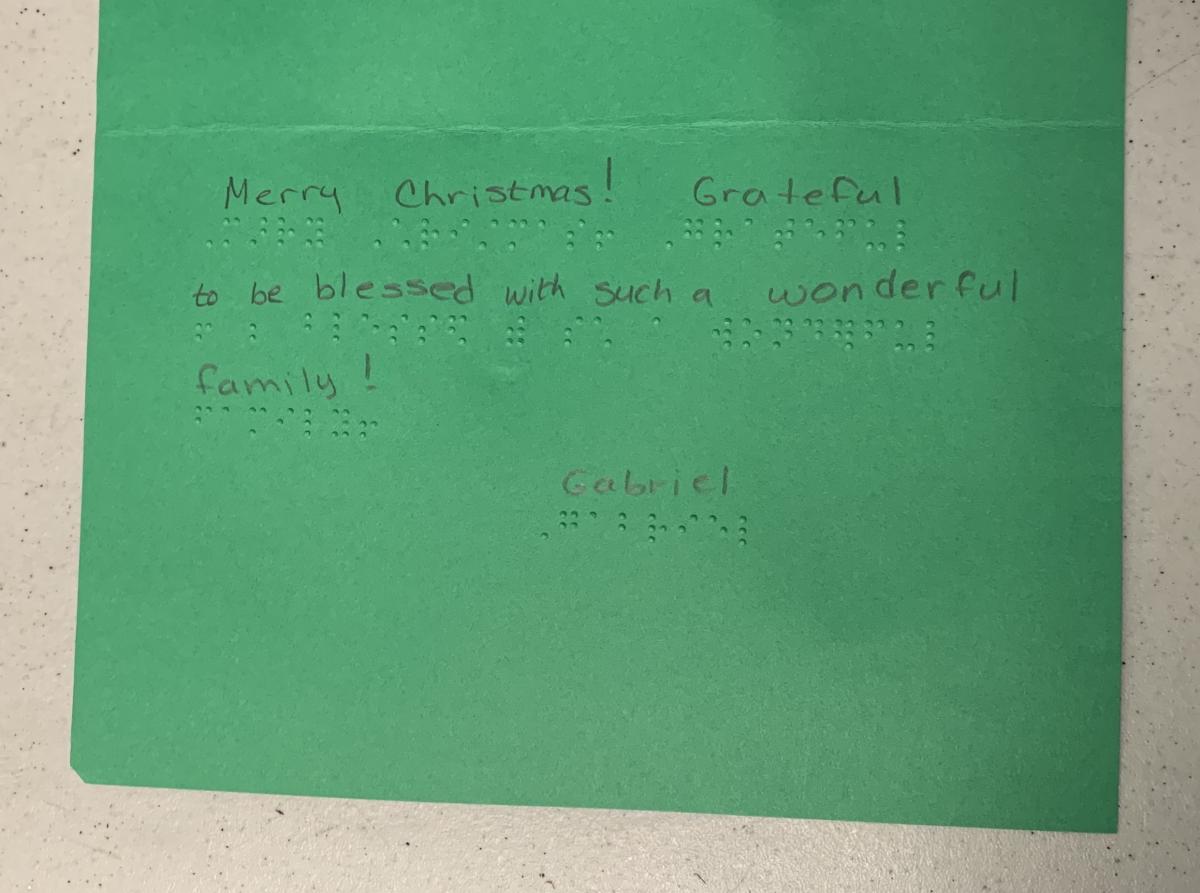 Merry Christmas! Grateful
to be blessed with such a wonderful
family!
Gabriel